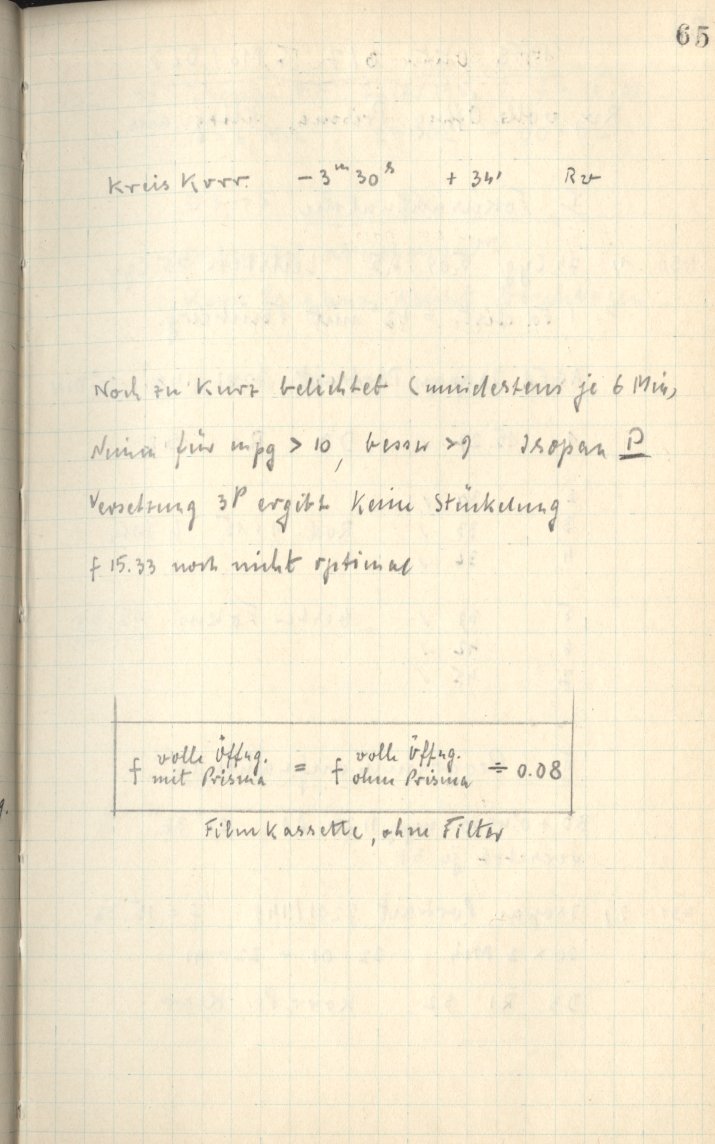 65
Kreis Korr. -3ᵐ 30ˢ + 34' Rv
Noch zu kurz belichtet (mindestens je 6 Min)
für mpg > 10, besser > 9 Isopan P
Versetzung 3P ergibt keine Stückelung
f 15.33 noch nicht optimal
f volle Öffng. mit Prisma = f volle Öffng. ohne Prisma ÷ 0.08
Filmkassette, ohne Filter